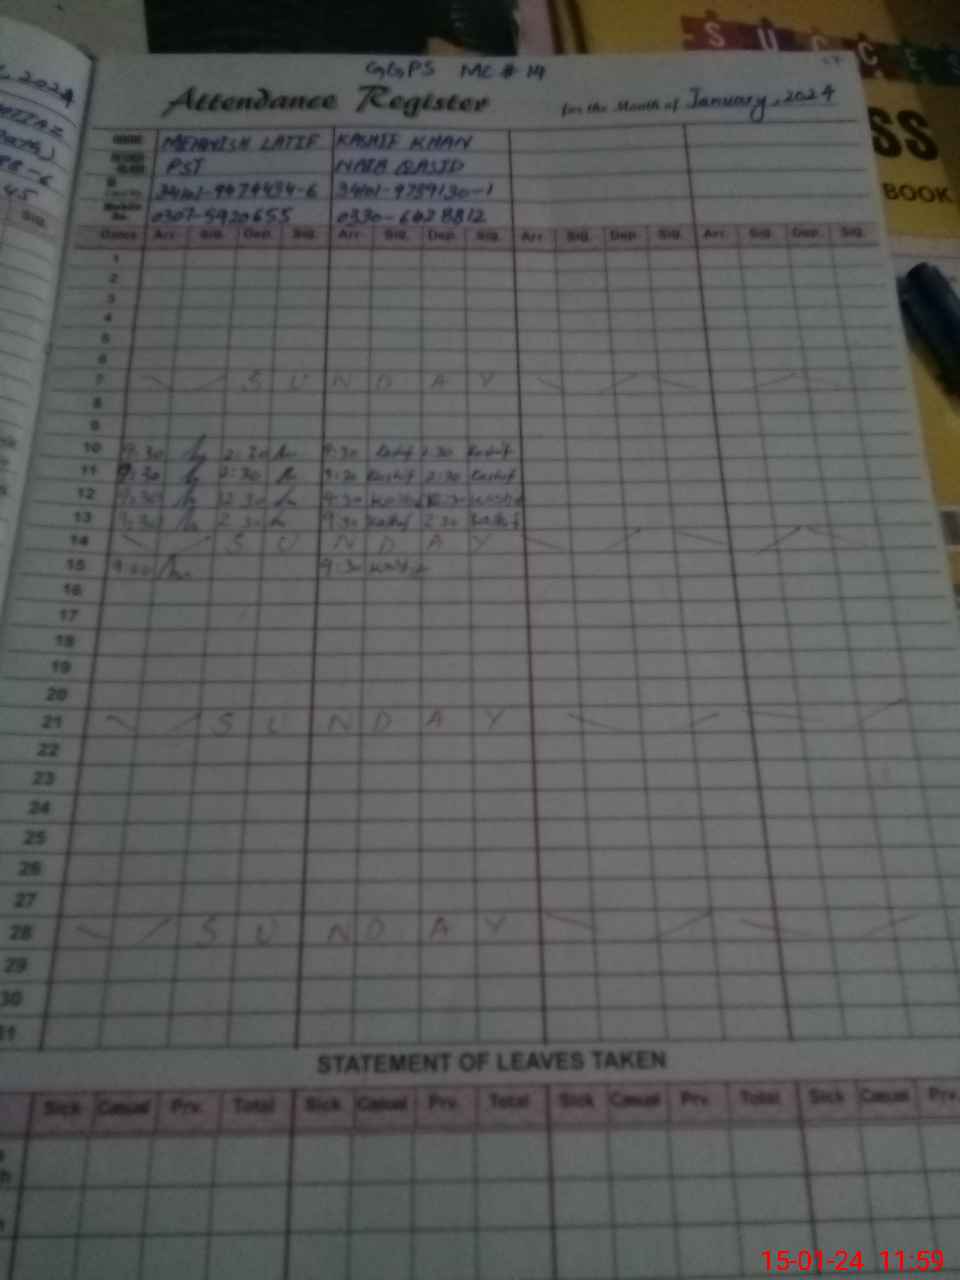 GGPS MC # 14
Attendance Register for the Month of January, 2024
MEHVISH LATIF KASHIF KHAN
PST NAIB QASID
34101-9474494-6 34101-9789130-1
0307-5920655 0330-6628812
Dates Arr. Sig. Dep. Sig. Arr. Sig. Dep. Sig. Arr. Sig. Dep. Sig. Arr. Sig. Dep. Sig.
1
2
3
4
5
6
7 S U N D A Y
8
9
10 9:30 2:30 9:30 Kashif 2:30 Kashif
11 9:30 2:30 9:30 Kashif 2:30 Kashif
12 9:30 12:30 9:30 Kashif 12:30 Kashif
13 9:30 2:30 9:30 Kashif 2:30 Kashif
14 S U N D A Y
15 9:30 Kashif
16
17
18
19
20
21 S U N D A Y
22
23
24
25
26
27
28 S U N D A Y
29
30
31
STATEMENT OF LEAVES TAKEN
Sick Casual Prv. Total Sick Casual Prv. Total Sick Casual Prv. Total Sick Casual Prv.
, 2024
45
Sig.
S U C C E S
SS
BOOK
15-01-24 11:59